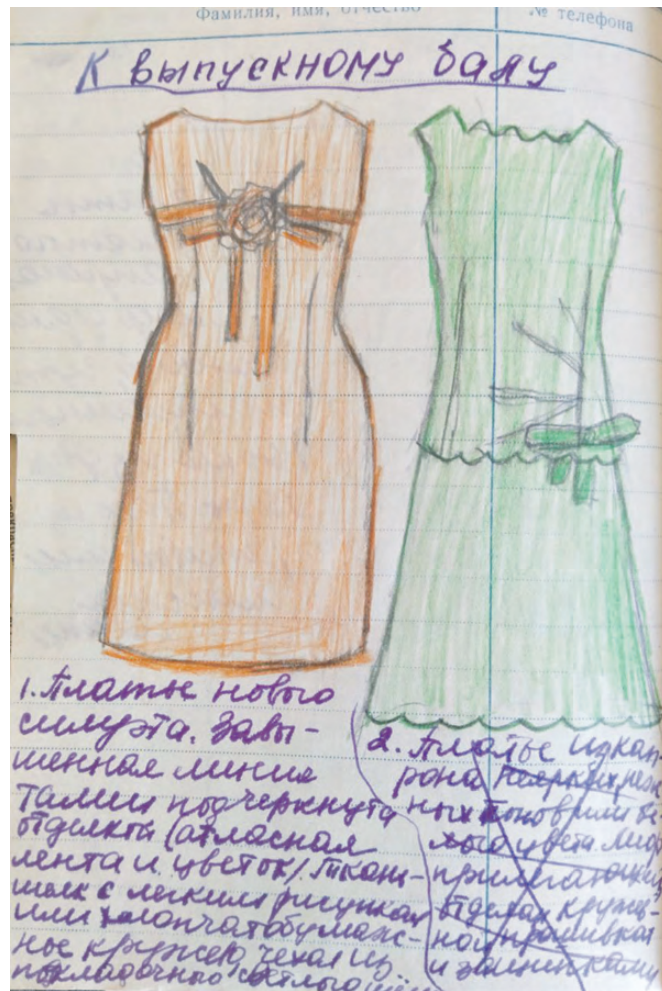 Фамилия, имя, отчество
№ телефона
К выпускному балу
1. Платье нового
силуэта. Завы-
шенная линия
талии подчеркнута
отделкой (атласная
лента и цветок). Ткань-
шелк с легким рисунком
или хлопчатобумаж-
ное кружево, чехол из
подкладочного
2. Платье из кап-
рона неярких, неж-
ных тонов или бе-
лого цвета. Лиф
прилегающий,
отделан кружев-
ной прошивкой
и защипками